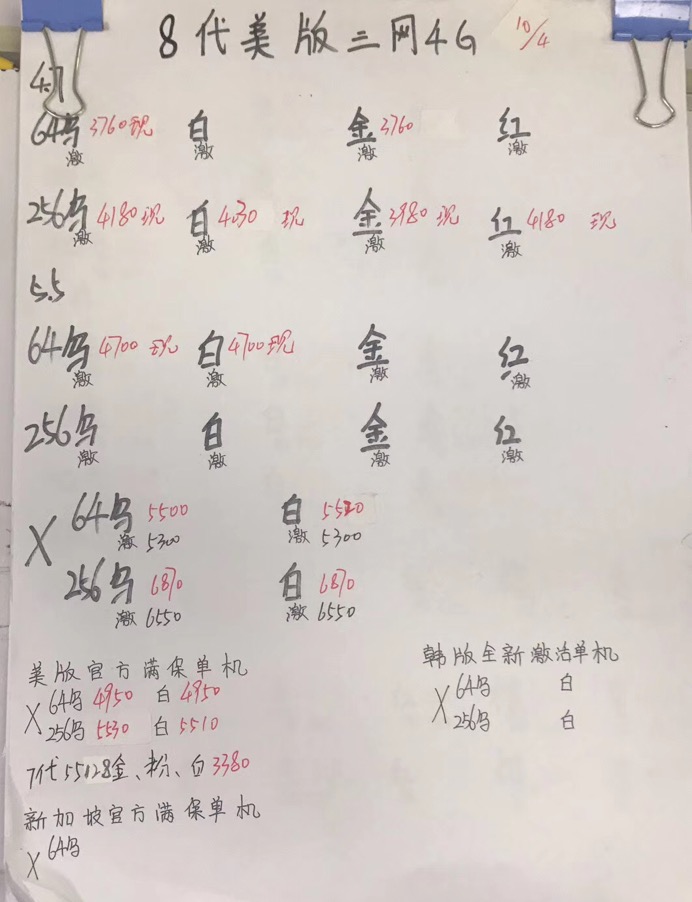 8代美版三网4G 10/4
4.7
64乌3760现 白 金3760 红
激 激 激 激
256乌4180现 白4030 现 金3980现 红4180 现
激 激 激 激
5.5
64乌4700现 白4700现 金 红
激 激 激 激
256乌 白 金 红
激 激 激 激
X 64乌 5500 白 5520
激 5300 激 5300
256乌 6870 白 6870
激 6550 激 6550
美版官方满保单机
X 64乌 4950 白 4950
256乌 5530 白 5510
7代55128金、粉、白3380
新加坡官方满保单机
X 64乌
韩版全新激活单机
X 64乌 白
256乌 白